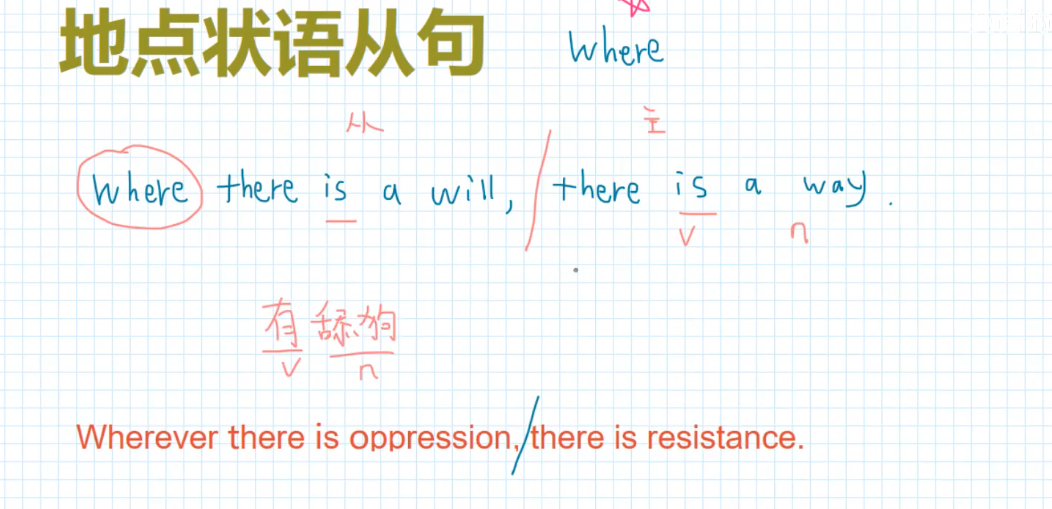 地点状语从句
where
从 主
Where there is a will, / there is a way.
v n
有 舔狗
v n
Wherever there is oppression, / there is resistance.